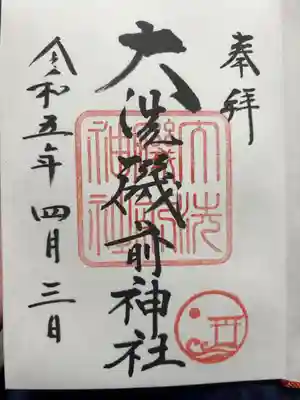 奉拝
大洗磯前神社
令和五年四月三日
大洗
磯前
神社